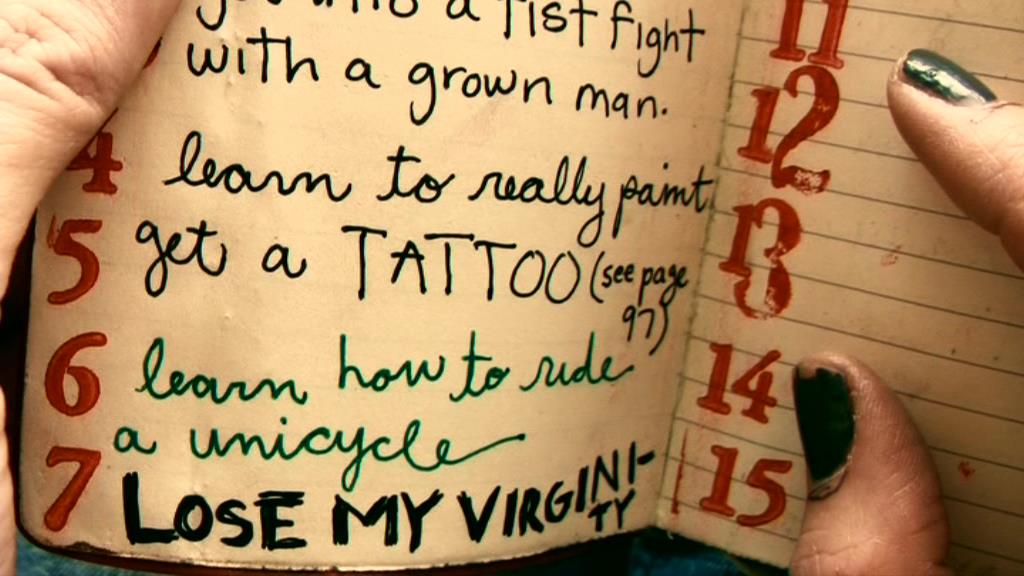 get into a fist fight
with a grown man.
4 learn to really paint
5 get a TATTOO (see page
97)
6 learn how to ride
a unicycle
7 LOSE MY VIRGINI-
TY
11
12
13
14
15